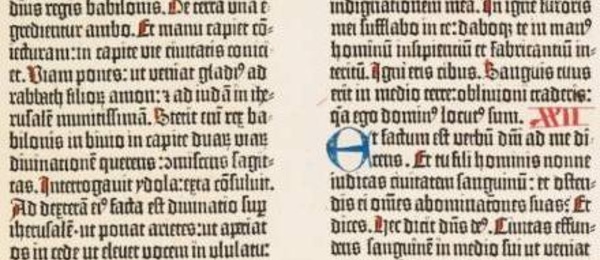 dūs regis babilonis. De terra una e-
gredientur ambo. Et manu capiet cō-
iecturam: in capite vie civitatis conici-
et. Viam pones: ut veniat gladiꝰ ad
rabbath filioꝝ amon: ⁊ ad iudā in ihe-
rusalē munitissimā. Stetit enī rex ba-
bilonis in bivio in capite duaꝝ viaꝝ
divinationē querens: ꝯmiscens sagit-
tas. Interrogavit ydola: exta cōsuluit.
Ad dexterā eiꝰ facta est divinatio sup
iherusalē: ut ponat arietes: ut aperiat
os in cede: ut elevet vocem in ululatu:
indignationem meā. In igne furoris
mei sufflabo in te: daboqꝫ te in manꝰ
hominū insipientiū et fabricantiū in-
teritū. Igni eris cibus. Sanguis tuus
erit in medio terre: oblivioni traderis:
q̄a ego dominꝰ locutꝰ sum. XXII
Et factum est verbū dn̄i ad me di-
cens. Et tu fili hominis nonne
iudicas civitatem sanguinū: et osten-
dis ei omēs abominatōnes suas? Et
dices. Hec dicit dn̄s deꝰ. Civitas effun-
dens sanguinē in medio sui ut veniat